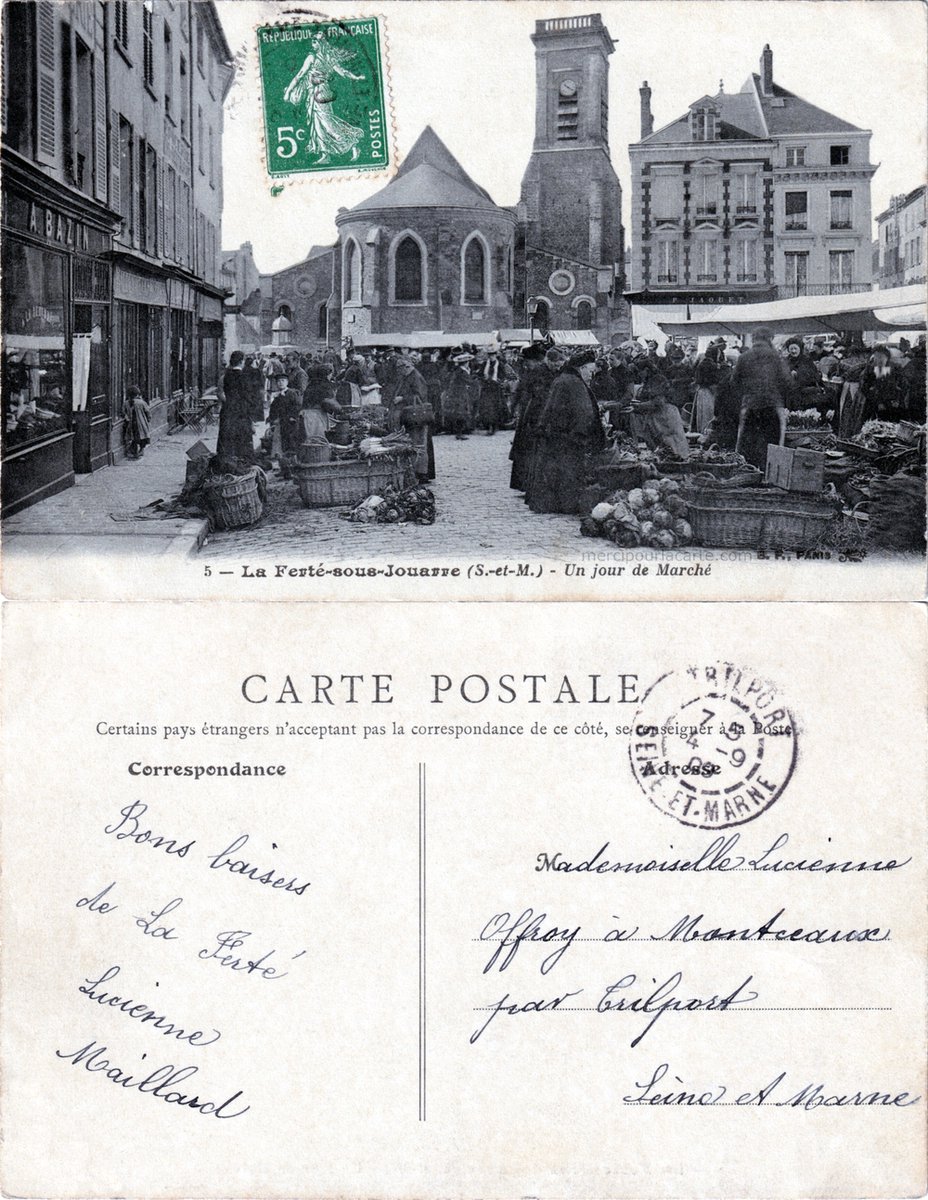 RÉPUBLIQUE FRANÇAISE
5c
POSTES
A. BAZIN
P. JAOUET
mercipourlacarte.com
PARIS
5 — La Ferté-sous-Jouarre (S.-et-M.) - Un jour de Marché
CARTE POSTALE
Certains pays étrangers n'acceptant pas la correspondance de ce côté, se renseigner à la Poste
TRILPORT
7 5
4 -9
09
SEINE-ET-MARNE
Correspondance
Bons baisers
de La Ferté
Lucienne
Maillard
Adresse
Mademoiselle Lucienne
Offroy à Montceaux
par Trilport
Seine et Marne